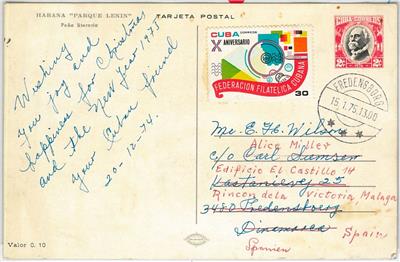 HABANA "PARQUE LENIN"
Peña literaria
TARJETA POSTAL
Wishing
you joy and
happiness for Christmas
and the New Year 1975
your Cuban friend
20-12-74.
Valor 0.10
CUBA CORREOS
X ANIVERSARIO
FEDERACION FILATELICA CUBANA
30
CUBA-CORREOS
2¢ 2¢
FREDENSBORG
15.1.75.13.00
Mr. E. H. Wilson
Alice Miller
c/o Carl
Edificio El Castillo 14
Kastanievej 25
Rincon dela Victoria Malaga
3480 Fredensborg
Dinamarca
Spain
Spanien